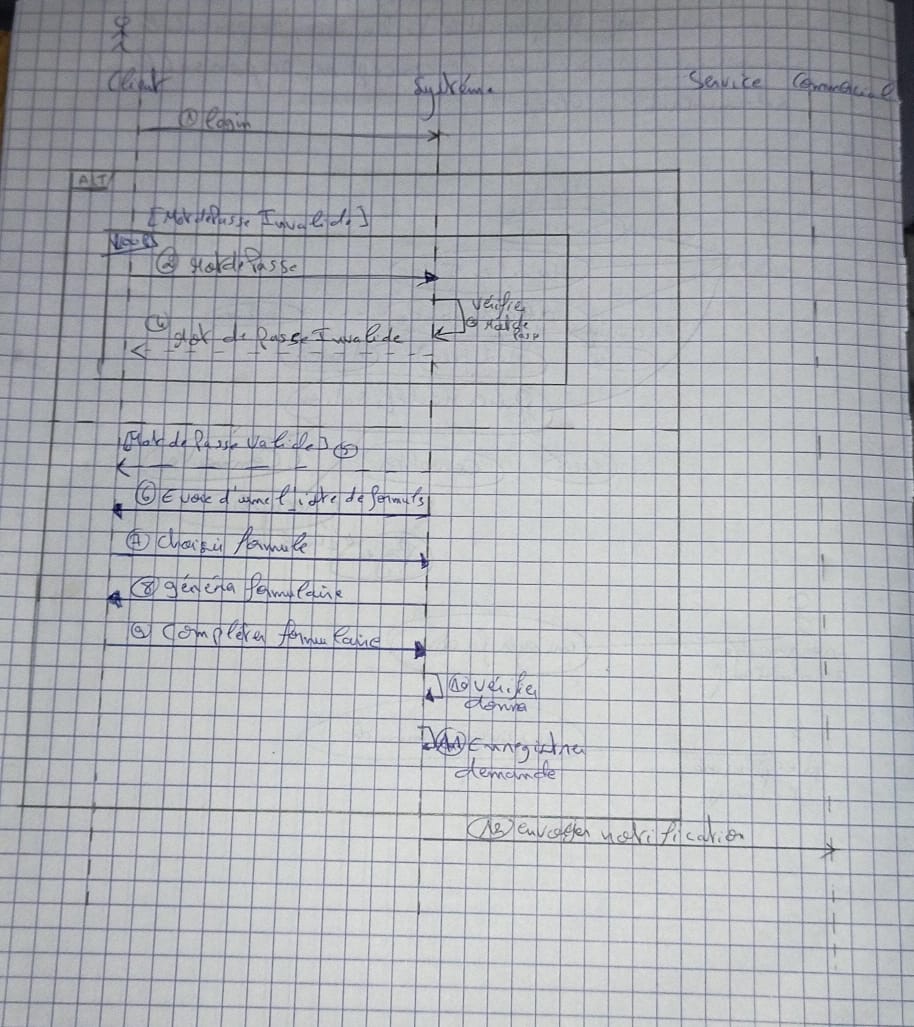 Client Système Service Commercial
① login
ALT
[Mot de Passe Invalide]
LOOP
② Mot de Passe
Vérifier
③ Mot de
Passe
④ Mot de Passe Invalide
[Mot de Passe Valide] ⑤
⑥ Envoie d'une liste de formuls
⑦ choisir formule
⑧ générer formulaire
⑨ Compléter formulaire
⑩ vérifier
donné
⑪ Enregistrer
demande
envoyer notification